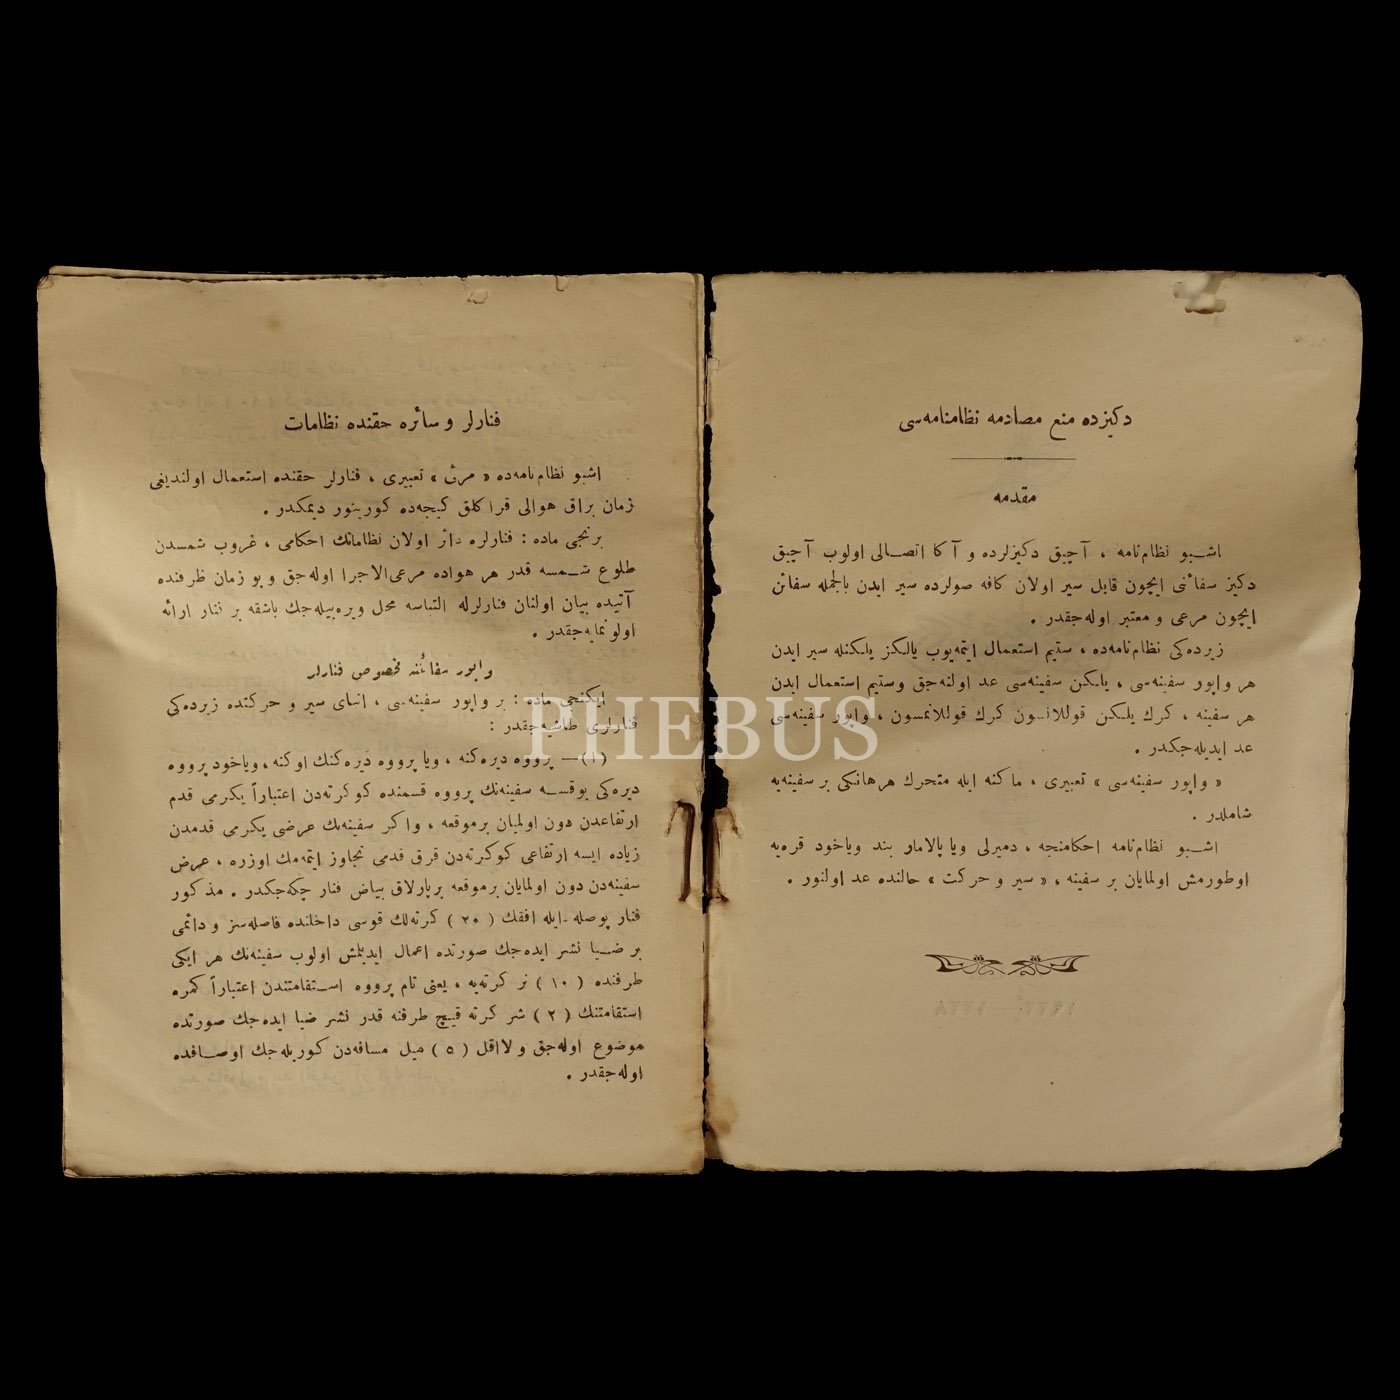 دكیزده منع مصادمه نظامنامه‌سی
مقدمه
اشبو نظام‌نامه ، آچیق دكیزلرده و آكا اتصالی اولوب آچیق
دكیز سفائنی ایچون قابل سیر اولان كافه صولرده سیر ایدن بالجمله سفائن
ایچون مرعی و معتبر اوله‌جقدر .
زیرده‌كی نظام‌نامه‌ده ، ستیم استعمال ایتمه‌یوب یالكز یلكنله سیر ایدن
هر واپور سفینه‌سی ، یلكن سفینه‌سی عد اولنه‌جق وستیم استعمال ایدن
هر سفینه ، كرك یلكن قوللانسون كرك قوللانمسون ، واپور سفینه‌سی
عد ایدیله‌جكدر .
« واپور سفینه‌سی » تعبیری ، ماكنه ایله متحرك هرهانكی بر سفینه‌یه
شاملدر .
اشبو نظام‌نامه احكامنجه ، دمیرلی ویا پالامار بند ویاخود قره‌یه
اوطورمش اولمایان بر سفینه ، « سیر و حركت » حالنده عد اولنور .
فنارلر و سائره حقنده نظامات
اشبو نظام‌نامه‌ده « مرئی » تعبیری ، فنارلر حقنده استعمال اولندیغی
زمان براق هوالی قراكلق كیجه‌ده كورینور دیمكدر .
برنجی ماده : فنارلره دائر اولان نظاماتك احكامی ، غروب شمسدن
طلوع شمسه قدر هر هواده مرعی‌الاجرا اوله‌جق و بو زمان ظرفنده
آتیده بیان اولنان فنارلرله التباسه محل ویره‌بیله‌جك باشقه بر فنار ارائه
اولونمایه‌جقدر .
واپور سفائننه مخصوص فنارلر
ایكنجی ماده : بر واپور سفینه‌سی ، اثنای سیر و حركتده زیرده‌كی
فنارلری طاشیه‌جقدر :
(١)— پرووه دیره‌كنه ، ویا پرووه دیره‌كنك اوكنه ، ویاخود پرووه
دیره‌كی یوقسه سفینه‌نك پرووه قسمنده كوكرته‌دن اعتباراً یكرمی قدم
ارتفاعدن دون اولمیان برموقعه ، واكر سفینه‌نك عرضی یكرمی قدمدن
زیاده ایسه ارتفاعی كوكرته‌دن قرق قدمی تجاوز ایتمه‌مك اوزره ، عرض
سفینه‌دن دون اولمایان برموقعه برپارلاق بیاض فنار چكه‌جكدر . مذكور
فنار پوصله ایله افقك ( ٢٠ ) كرته‌لك قوسی داخلنده فاصله‌سز و دائمی
بر ضیا نشر ایده‌جك صورتده اعمال ایدیلمش اولوب سفینه‌نك هر ایكی
طرفنده ( ١٠ ) نر كرته‌یه ، یعنی تام پرووه استقامتندن اعتباراً كمره
استقامتنك ( ٢ ) شر كرته قیچ طرفنه قدر نشر ضیا ایده‌جك صورتده
موضوع اوله‌جق و لااقل ( ٥ ) میل مسافه‌دن كوریله‌جك اوصافده
اوله‌جقدر .
PHEBUS